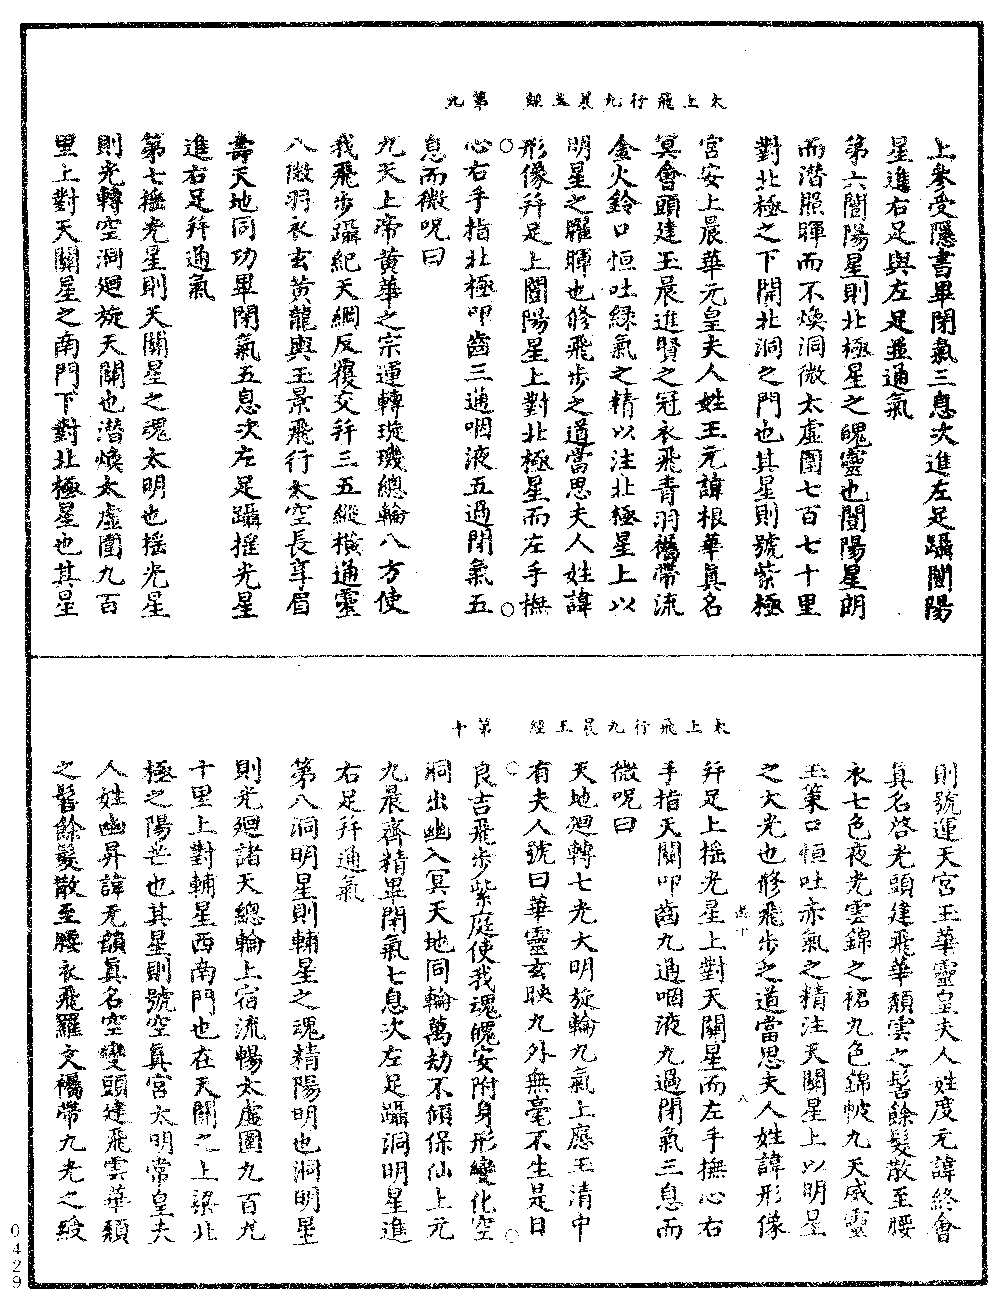 太上飛行九晨玉經　第九
上參受隱書畢閉氣三息次進左足躡闓陽
星進右足與左足並通氣
第六闓陽星則北極星之魄靈也闓陽星朗
而潛照暉而不煥洞微太虛圍七百七十里
對北極之下開北洞之門也其星則號紫極
宮安上晨華元皇夫人姓王元諱根華真名
冥會頭建玉晨進賢之冠衣飛青羽襦帶流
金火鈴口恒吐綠氣之精以注北極星上以
明星之朧暉也修飛步之道當思夫人姓諱
形像并足上闓陽星上對北極星而左手撫
心右手指北極叩齒三通咽液五過閉氣五
息而微呪曰
九天上帝黃華之宗運轉璇璣總輪八方使
我飛步躡紀天綱反覆交并三五縱橫通靈
八徹羽衣玄黃龍輿玉景飛行太空長享眉
壽天地同功畢閉氣五息次左足躡搖光星
進右足并通氣
第七搖光星則天關星之魂太明也搖光星
則光轉空洞迴旋天關也潛煥太虛圍九百
里上對天關星之南門下對北極星也其星
太上飛行九晨玉經　第十
則號運天宮玉華靈皇夫人姓度元諱終會
真名啓光頭建飛華頹雲之髻餘髮散至腰
衣七色夜光雲錦之裙九色錦帔九天威靈
玉策口恒吐赤氣之精注天關星上以明星
之大光也修飛步之道當思夫人姓諱形像
并足上搖光星上對天關星而左手撫心右
手指天關叩齒九通咽液九過閉氣三息而
微呪曰
天地迴轉七光大明旋輪九氣上應玉清中
有夫人號曰華靈玄映九外無毫不生是日
良吉飛步紫庭使我魂魄安附身形變化空
洞出幽入冥天地同輪萬劫不傾保仙上元
九晨齊精畢閉氣七息次左足躡洞明星進
右足并通氣
第八洞明星則輔星之魂精陽明也洞明星
則光迴諸天總輪上宿流暢太虛圍九百九
十里上對輔星西南門也在天關之上梁北
極之陽芒也其星則號空真宮太明常皇夫
人姓幽昇諱无韻真名空變頭建飛雲華頹
之髻餘髮散至腰衣飛羅文襦帶九光之綬
0429